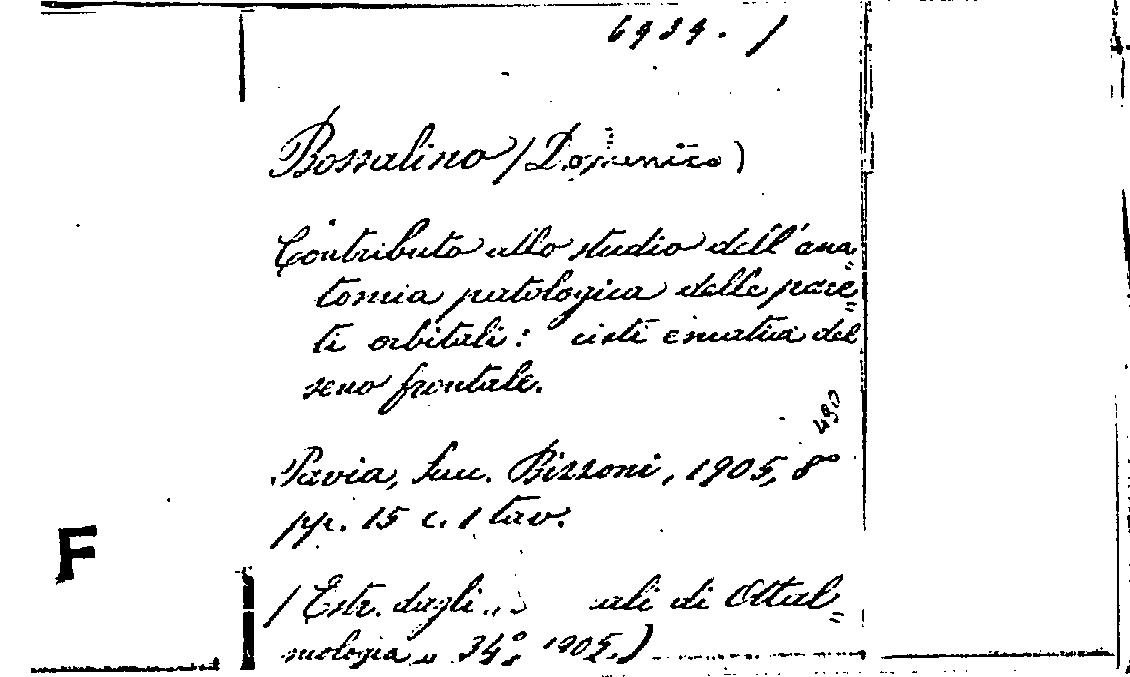 6939. /
Bossalino (Domenico)
Contributo allo studio dell'ana=
tomia patologica delle pare=
ti orbitali: cisti ematica del
seno frontale.
490
Pavia, Succ. Bizzoni, 1905, 8º
pp. 15 c. 1 tav.
F
(Estr. dagli ali di Ottal=
mologia 34º 1905.)